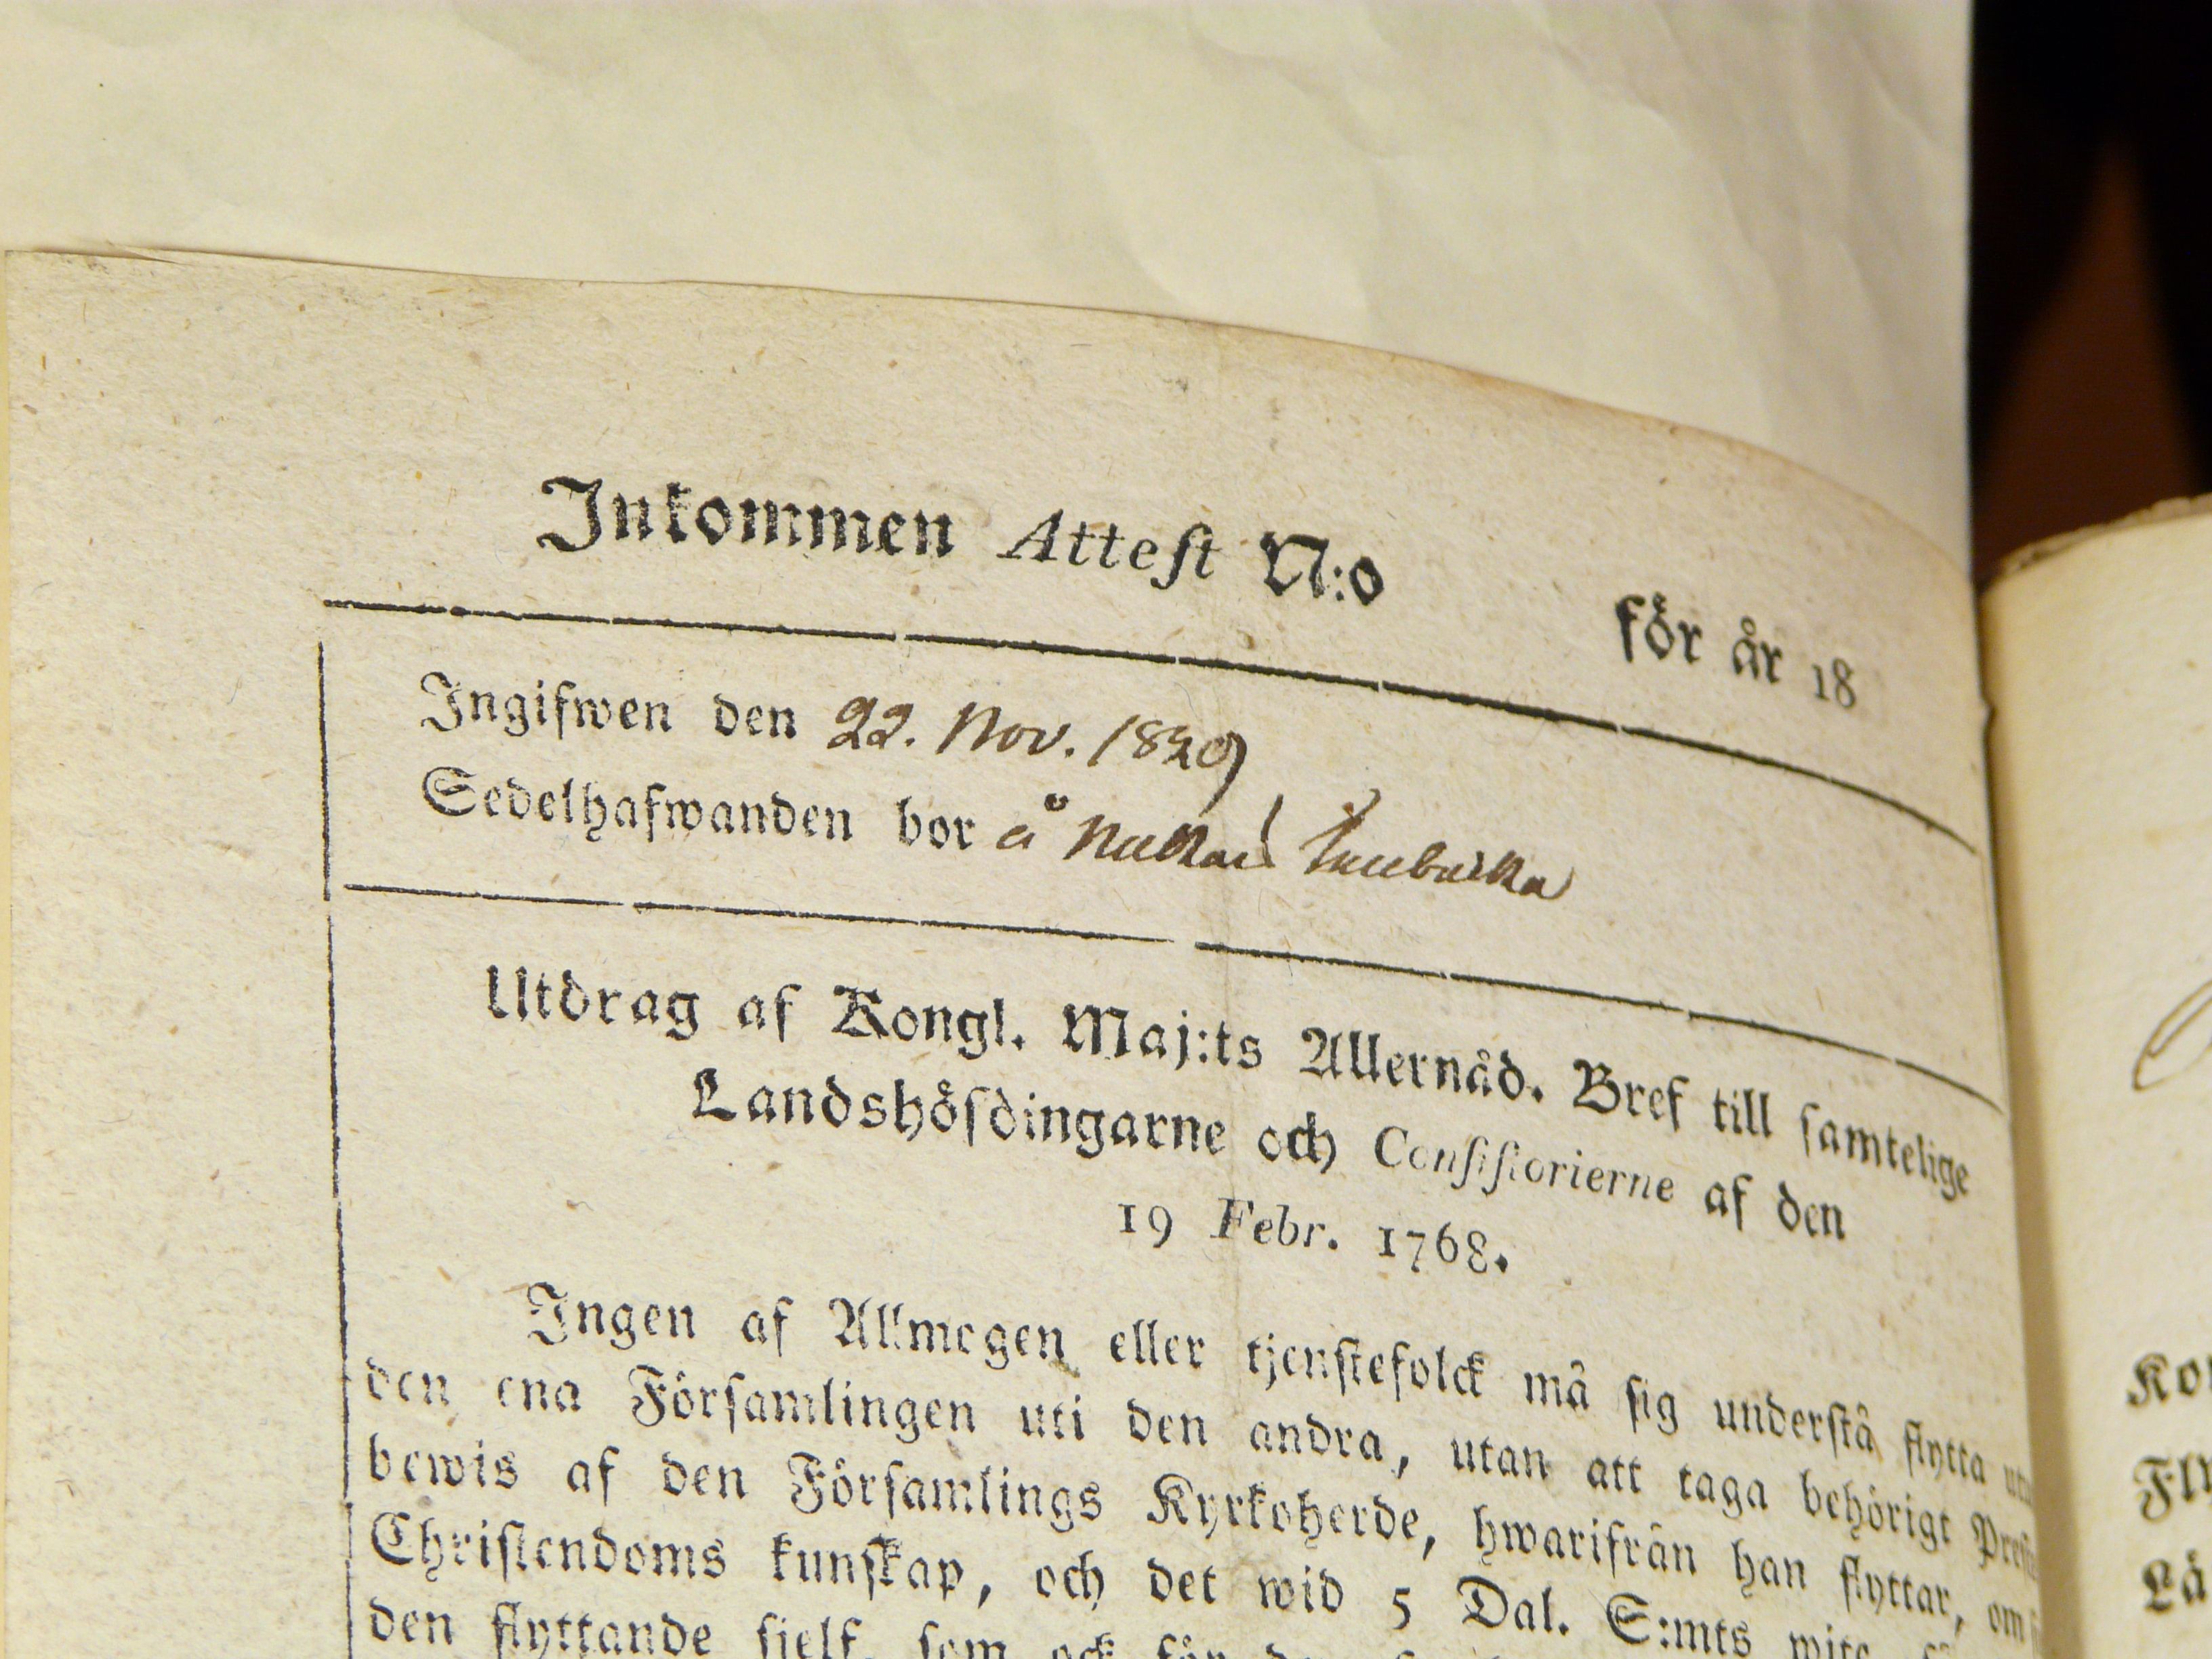 Inkommen Attest N:o för år 18
Ingifwen den 22. Nov. 1829
Sedelhafwanden bor å
Utdrag af Kongl. Maj:ts Allernåd. Bref till samtelige
Landshöfdingarne och Consistorierne af den
19 Febr. 1768.
Ingen af Allmogen eller tjenstefolck må sig understå flytta
den ena Församlingen uti den andra, utan att taga behörigt
bewis af den Församlings Kyrkoherde, hwarifrån han flyttar, om
Christendoms kunskap, och det wid 5 Dal. S:mts wite
den flyttande sjelf, som ock för